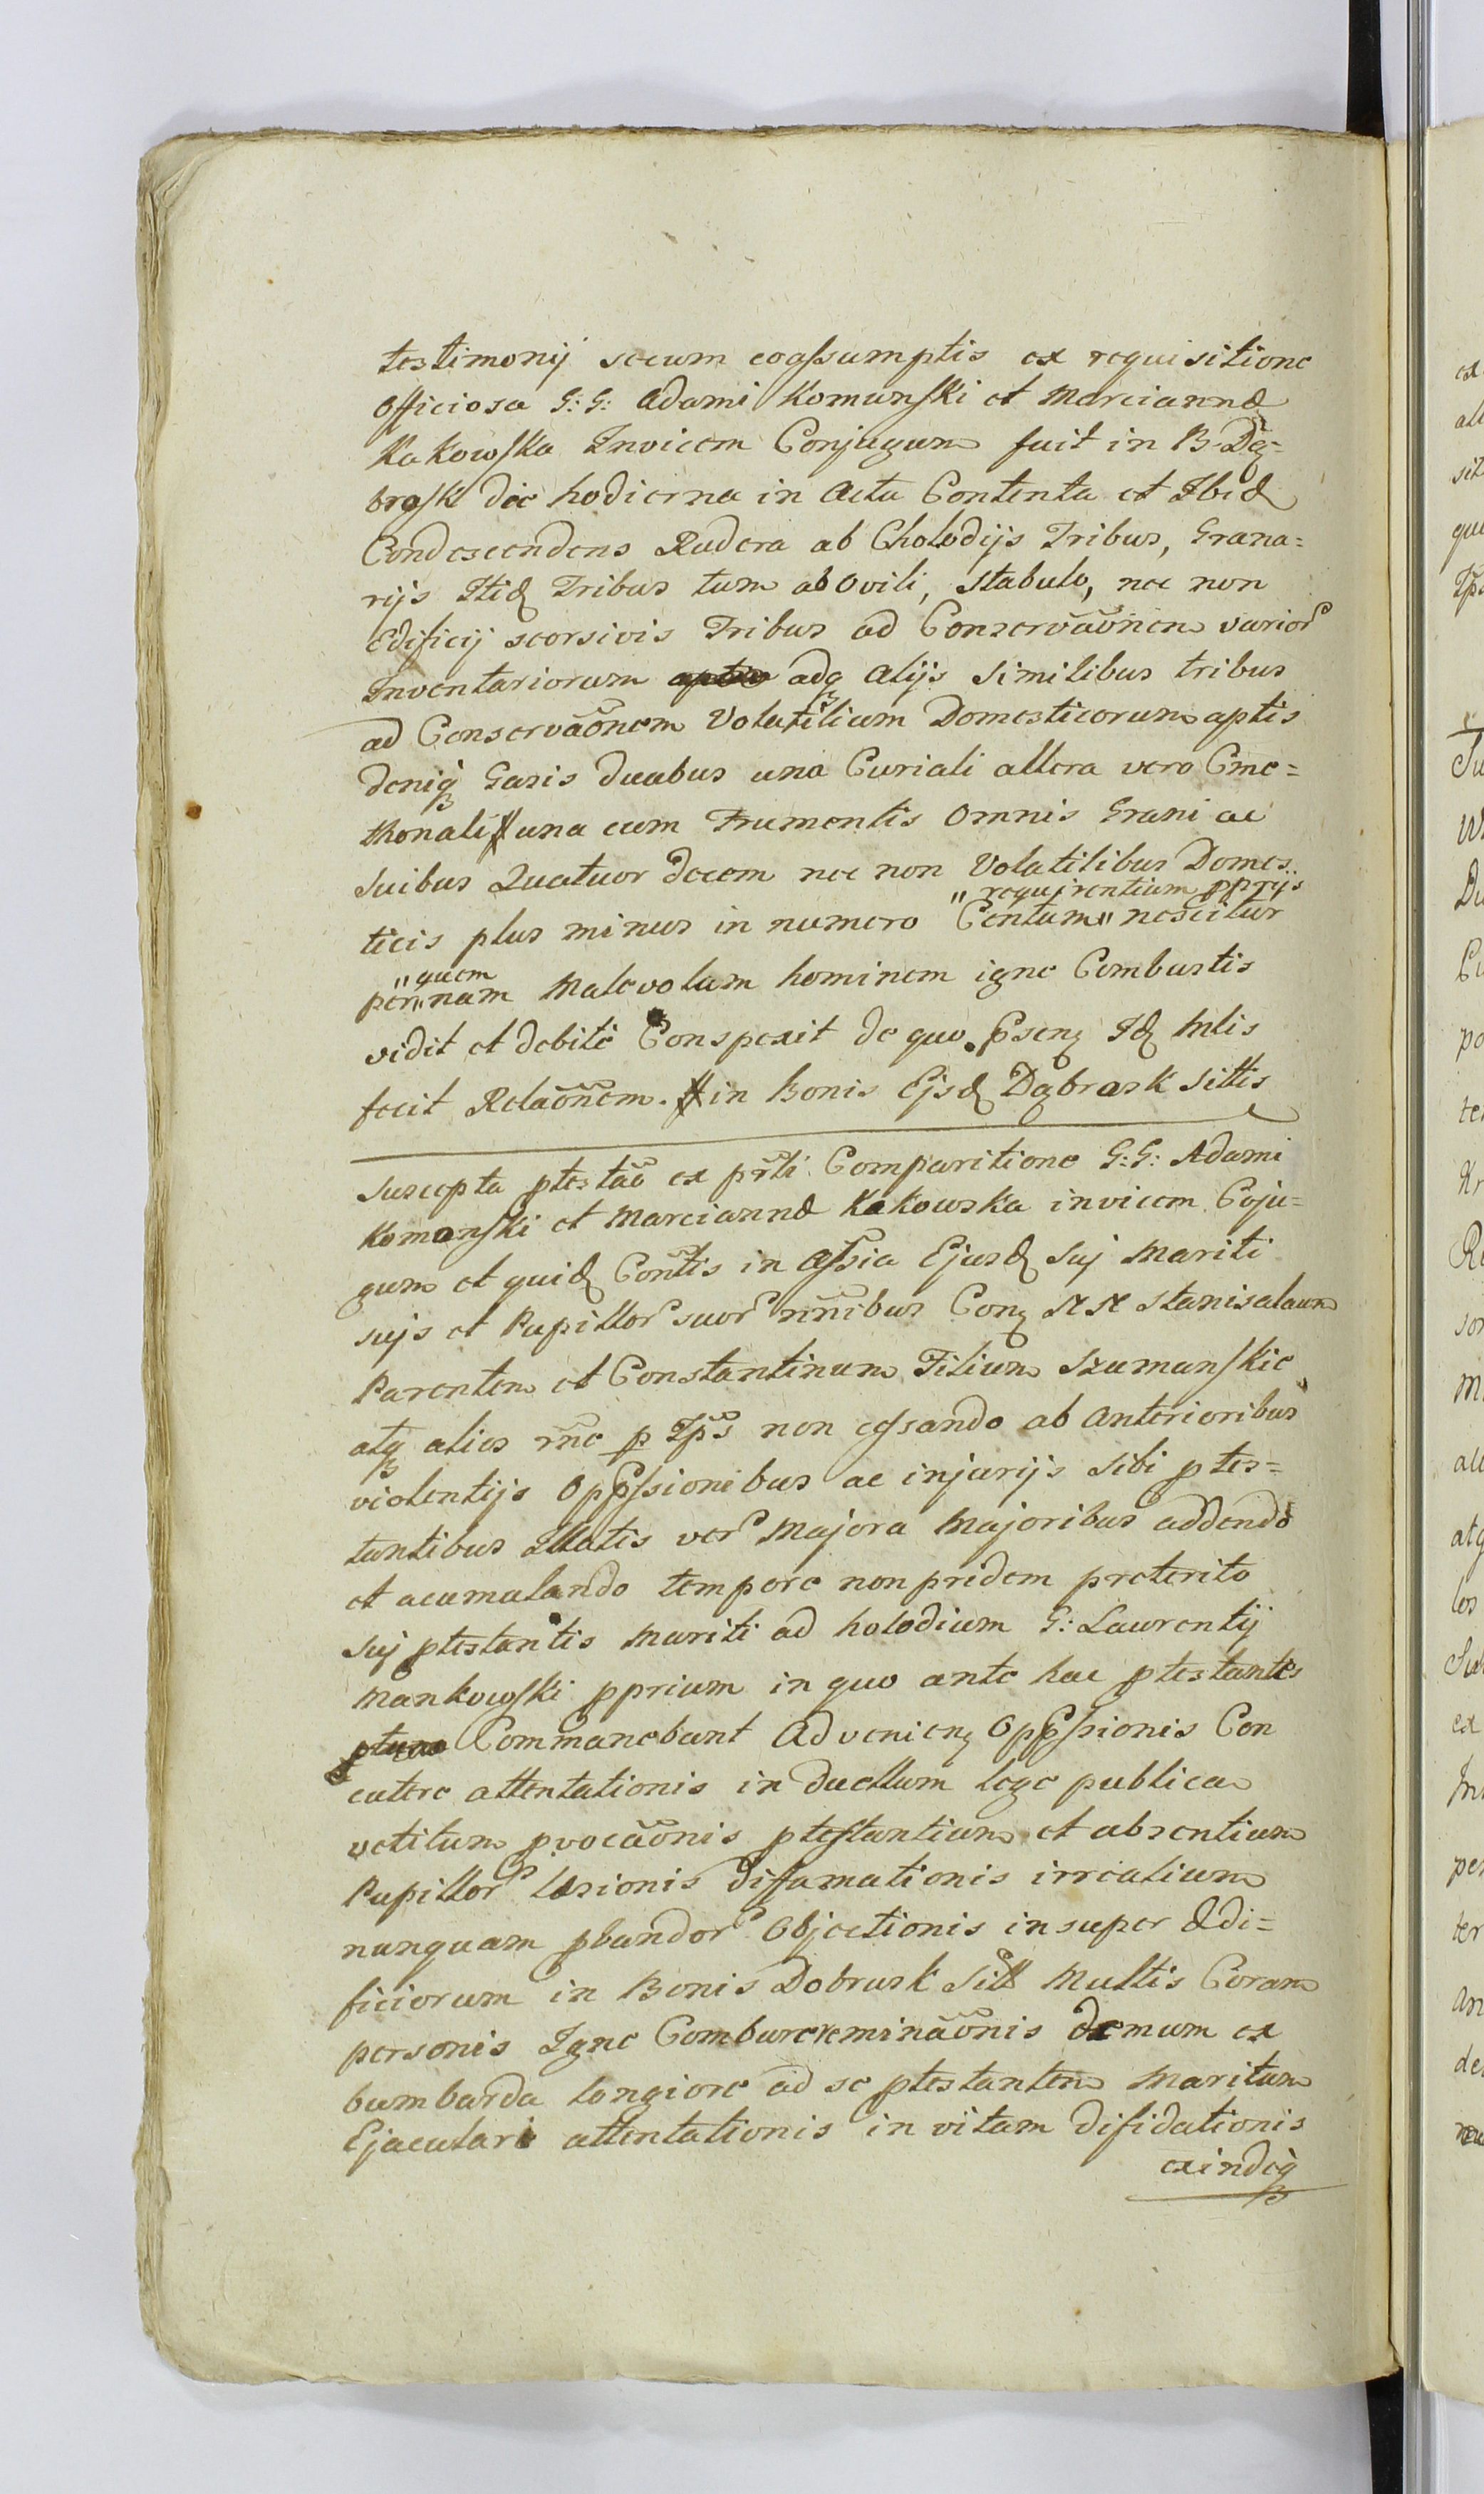 testimonij secum coassumptis ex requisitione
Officiosa G: G: Adami Komunski et Marciannæ
Kakowska Invicem Conjugum fuit in B. Dą=
brosk die hodierna in Actu Contenta et Ibid
Condescendens Rudera ab Cholodijs Tribus, Grana=
rijs Itid Tribus tum ab Ovili, Stabulo, nec non
Edificij seorsivis Tribus ad Conservãonem varior
Inventariorum adq alijs similibus tribus
ad Conservãonem Volatilium Domesticorum aptis
deniq Gazis duabus una Curiali altera vero Cme=
thonali # una cum Frumentis Omnis Grani ac
Suibus Quatuor decem nec non Volatilibus Domes
" requirentium pprijs
ticis plus minus in numero Centum " nescitur
" quem
per " nam Malevolum hominem igne Combustis
vidit et debite Conspexit de quo Psens Id Mlis
fecit Relãonem. # in Bonis Ejsd Dąbrosk Sittis
Suscepta ptestão ex prti Comparitione G: G: Adami
Komonski et Marciannæ Kakowska invicem Coju=
gum et quid Contis in Assia Ejusd Suj Mariti
sujs et Pupillor suor nnibus Con NN Stanisalaum
Parentem et Constantinum Filium Szumunskie
atq alios rne p Ips non cessando ab Anterioribus
violentijs Oppssionibus ac injurijs Sibi ptes=
tantibus Illatis ver Majora Majoribus addendo
et acumulando tempore non pridem preterito
Suj ptestantis Mariti ad holodium G: Laurentij
Mankowski pprium in quo ante hac ptestantes
Commanebant Advenien Oppssionis Con
cutere attentationis in duellum lege publica
vetitum pvocãonis ptestantium et absentium
Pupillor læsionis diffamationis irrealium
nunquam pbandor Objectionis insuper Ædi=
ficiorum in Bonis Dobrusk Sitt Multis Coram
personis Igne Comburereminãonis demum ex
bumbarda longiore ad se ptestantem Maritum
Ejaculari attentationis in vitam difidationis
exindeq